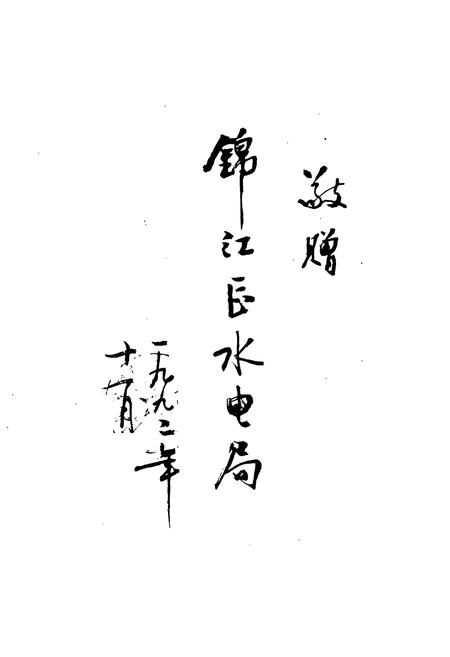 敬赠
錦江区水电局
一九九二年
十一月